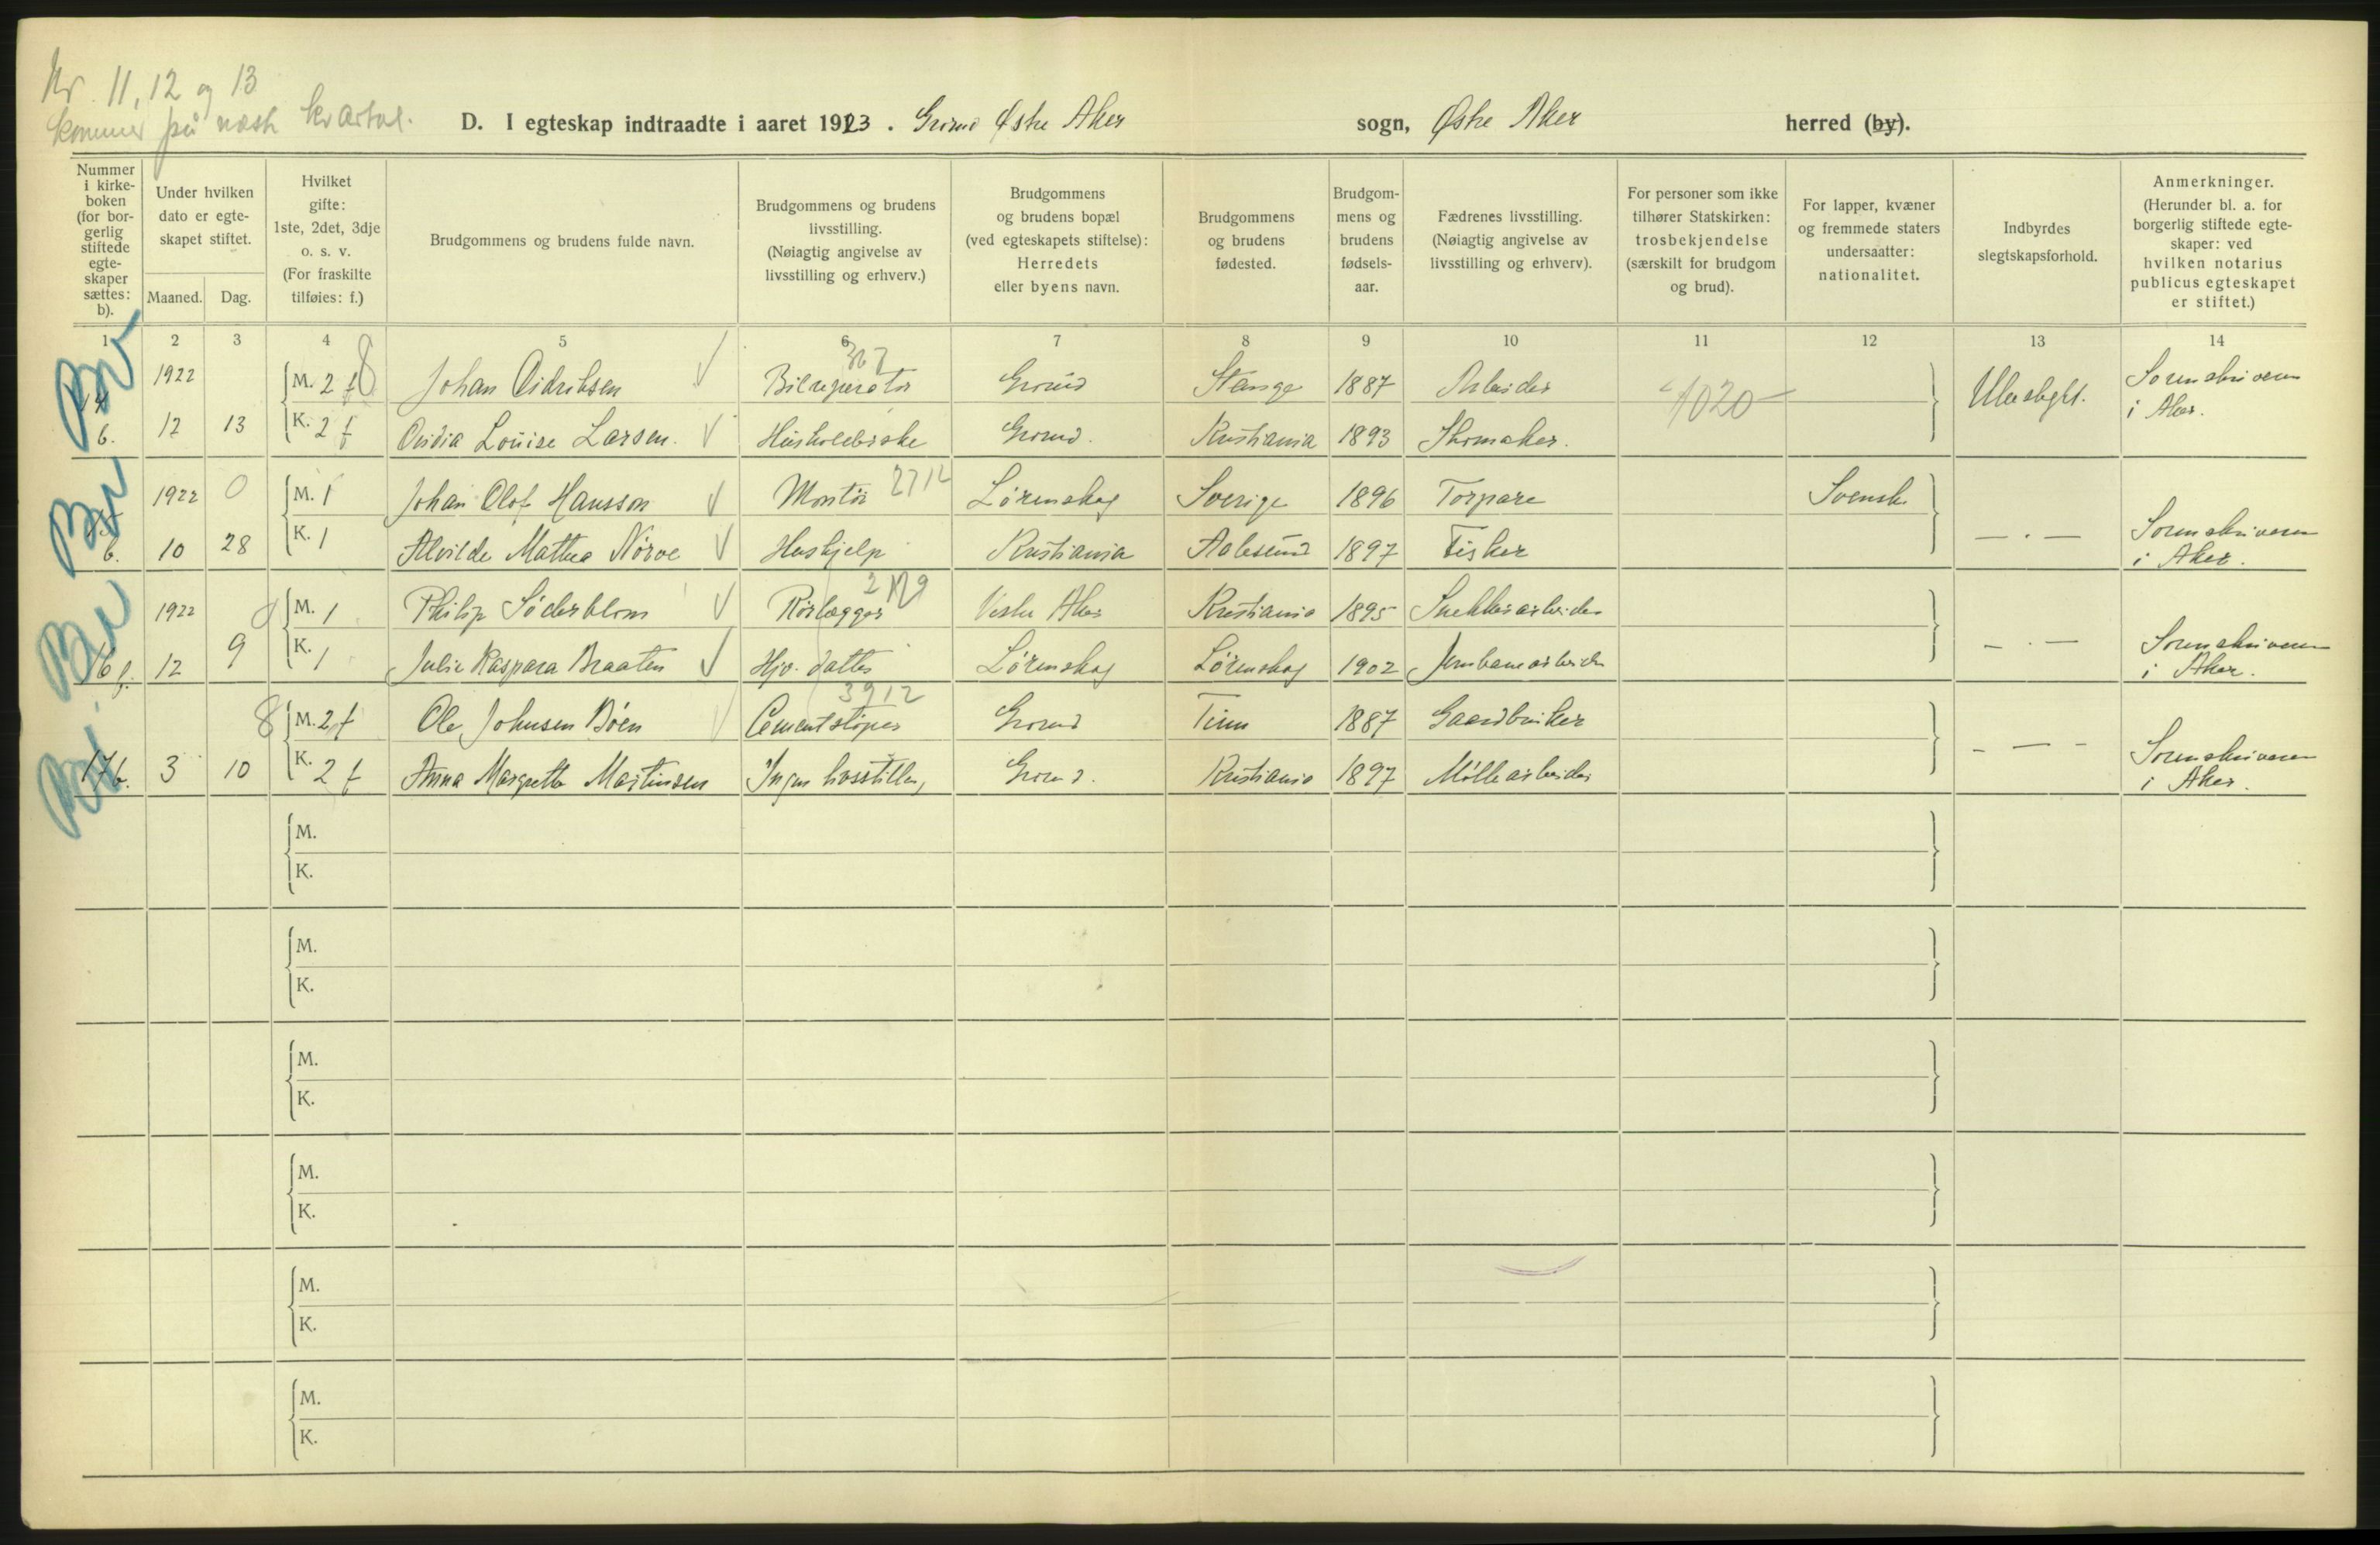 Nr. 11, 12 og 13
kommer på næste kvartal.
D. I egteskap indtraadte i aaret 1923. Grorud Østre Aker sogn, Østre Aker herred (by).
Nummer i kirke-boken (for bor-gerlig stiftede egte-skaper sættes: b).
Under hvilken dato er egte-skapet stiftet.
Maaned. Dag.
Hvilket gifte: 1ste, 2det, 3dje o. s. v. (For fraskilte tilføies: f.)
Brudgommens og brudens fulde navn.
Brudgommens og brudens livsstilling. (Nøiagtig angivelse av livsstilling og erhverv.)
Brudgommens og brudens bopæl (ved egteskapets stiftelse): Herredets eller byens navn.
Brudgommens og brudens fødested.
Brudgom-mens og brudens fødsels-aar.
Fædrenes livsstilling. (Nøiagtig angivelse av livsstilling og erhverv).
For personer som ikke tilhører Statskirken: trosbekjendelse (særskilt for brudgom og brud).
For lapper, kvæner og fremmede staters undersaatter: nationalitet.
Indbyrdes slegtskapsforhold.
Anmerkninger. (Herunder bl. a. for borgerlig stiftede egte-skaper: ved hvilken notarius publicus egteskapet er stiftet.)
1 2 3 4 5 6 7 8 9 10 11 12 13 14
14 b. 1922 12 13
M. 2 f Johan Didriksen Bilreperatør Grorud Stange 1887 Arbeider 4020 Ubeslegtet. Sorenskriveren i Aker.
K. 2 f Ovidia Louise Larsen. Husholderske Grorud. Kristiania 1893 Skomaker.
b. 1922 10 28 0
M. 1 Johan Olof Hansson Montør 2712 Lørenskog Sverige 1896 Torpare Svensk. — . — Sorenskriveren i Aker.
K. 1 Alvilde Mathea Nørve Hushjelp Kristiania Aalesund 1897 Fisker
16 b. 1922 12 9
M. 1 Philip Söderblom Rørlægger Vestre Aker Kristiania 1895 Snekkerarbeider — . — Sorenskriveren i Aker.
K. 1 Julie Kaspara Braaten Hjv. datter Lørenskog Lørenskog 1902 Jernbanearbeider
17 b. 3 10 8
M. 2 f Ole Johnsen Bøen Cementstøper 3912 Grorud Tinn 1887 Gaardbruker - — - Sorenskriveren i Aker.
K. 2 f Anna Margrethe Martinsen Ingen livsstilling Grorud. Kristiania 1897 Møllearbeider
M.
K.
M.
K.
M.
K.
M.
K.
M.
K.
M.
K.